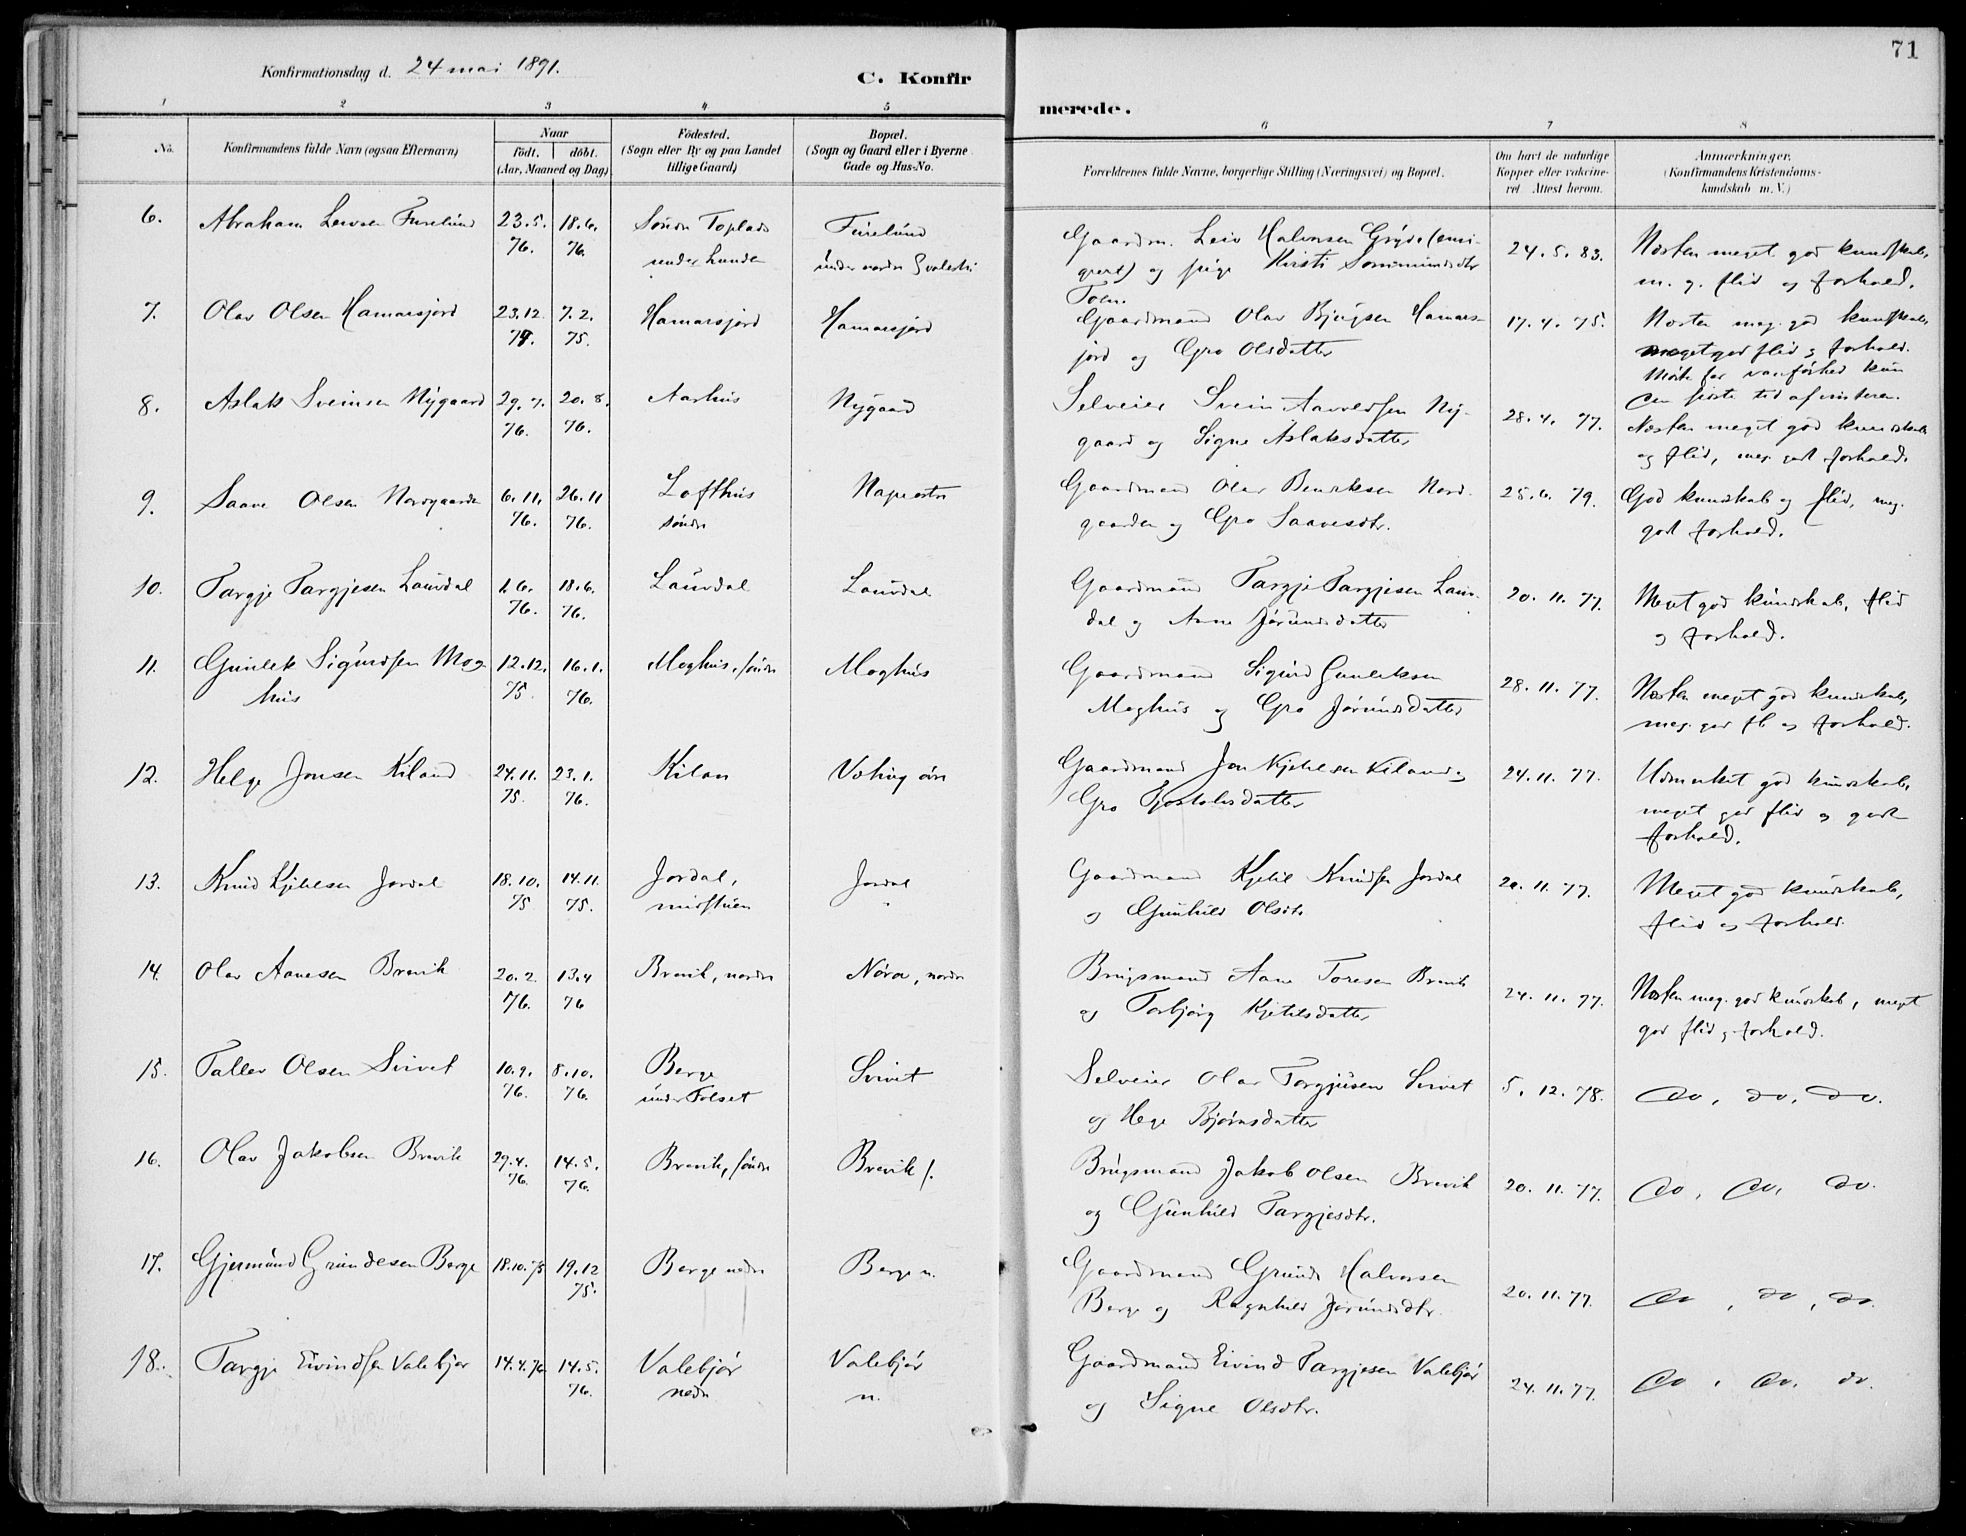 71
Konfirmationsdag d. 24 mai 1891.
C. Konfirmerede.
1 2 3 4 5 6 7 8
No.
Konfirmandens fulde Navn (ogsaa Efternavn)
Naar
født. døbt.
(Aar, Maaned og Dag)
Fødested.
(Sogn eller By og paa Landet
tillige Gaard)
Bopæl.
(Sogn og Gaard eller i Byerne
Gade og Hus-No.
Forældrenes fulde Navne, borgerlige Stilling (Næringsvei) og Bopæl.
Om havt de naturlige
Kopper eller vakcine-
ret. Attest herom.
Anmærkninger.
(Konfirmandens Kristendoms-
kundskab m. V.)
6. Abraham Leivsen Furelund 23.5. 18.6. Søndre
76. 76. under Lunde
Furelund
under nordre
Gaardm. Leiv Halvorsen (emi-
grert) og pige Kirsti
24.5.83. Næsten meget god kundskab,
m. g. flid og forhold.
7. Olav Olsen Hamarsjord 23.12 7.2. Hamarsjord Hamarsjord
74. 75.
Gaardmand Olav Hamars-
jord og Gro Olsdatter
17.4.75. Næsten meg. god kundskab,
meget god flid og forhold.
Mødte for vanførhed kun
den første tid af vinteren.
8. Aslak Sveinsen Nygaard 29.7. 20.8. Aarhus Nygaard
76. 76.
Selveier Svein Ny-
gaard og Signe Aslaksdatter
28.4.77. Næsten meget god kundskab
og flid, meg. godt forhold.
9. Saave Olsen Nordgaarden 6.11. 26.11 Lofthus
76. 76. søndre
Gaardmand Olav Nord-
gaarden og Gro Saavesdtr.
25.6.79. God kundskab og flid, meg.
godt forhold.
10. Targje Targjesen Laurdal 1.6. 18.6. Laurdal Laurdal
76. 76.
Gaardmand Targje Targjesen Laur-
dal og Anne Jørundsdatter
20.11.77. Meget god kundskab, flid
og forhold.
11. Gunlek Sigurdsen Mog- 12.12. 16.1. Moghus, søndre Moghus
hus 75. 76.
Gaardmand Sigurd Gunleksen
Moghus og Gro Jørundsdatter
28.11.77. Næsten meget god kundskab,
meg. god fl. og forhold.
12. Helge Jonsen Kiland 24.11. 23.1. Kilan
75. 76.
Gaardmand Jon Kjetilsen Kiland og
Gro
24.11.77. Udmerket god kundskab,
meget god flid og godt
forhold.
13. Knud Kjetilsen Jordal 18.10. 14.11. Jordal, Jordal
75 75. midstuen
Gaardmand Kjetil Knudsen Jordal
og Gunhild Olsdtr.
20.11.77. Meget god kundskab,
flid og forhold.
14. Olav Aanesen Brevik 20.2. 13.4 Brevik, nordre Nøra, nordre
76. 76
Brugsmand Aane Toresen Brevik
og Torbjørg Kjetilsdatter
24.11.77. Næsten meg. god kundskab, meget
god flid og forhold.
15. Tallev Olsen Sivvet 10.9. 8.10. Berge
76. 76. under Folset
Selveier Olav Torgjusen
og Hege Bjørnsdatter
5.12.78. do, do, do.
16. Olav Jakobsen Brevik 29.4. 14.5. Brevik, søndre Brevik s.
76. 76.
Brugsmand Jakob Olsen Brevik
og Gunhild Targjesdtr.
20.11.77. do, do, do.
17. Gjermund Grundesen Berge 18.10.75 19.12 Berge nedre Berge n.
75.
Gaardmand Grunde Halvorsen
Berge og Ragnhild Jørundsdtr.
20.11.77. do, do, do.
18. Targje Eivindsen Valebjør 14.4.76 14.5. Valebjør Valebjør
76. nedre n.
Gaardmand Eivind Targjesen Valebjør
og Signe Olsdtr.
24.11.77. do, do, do.